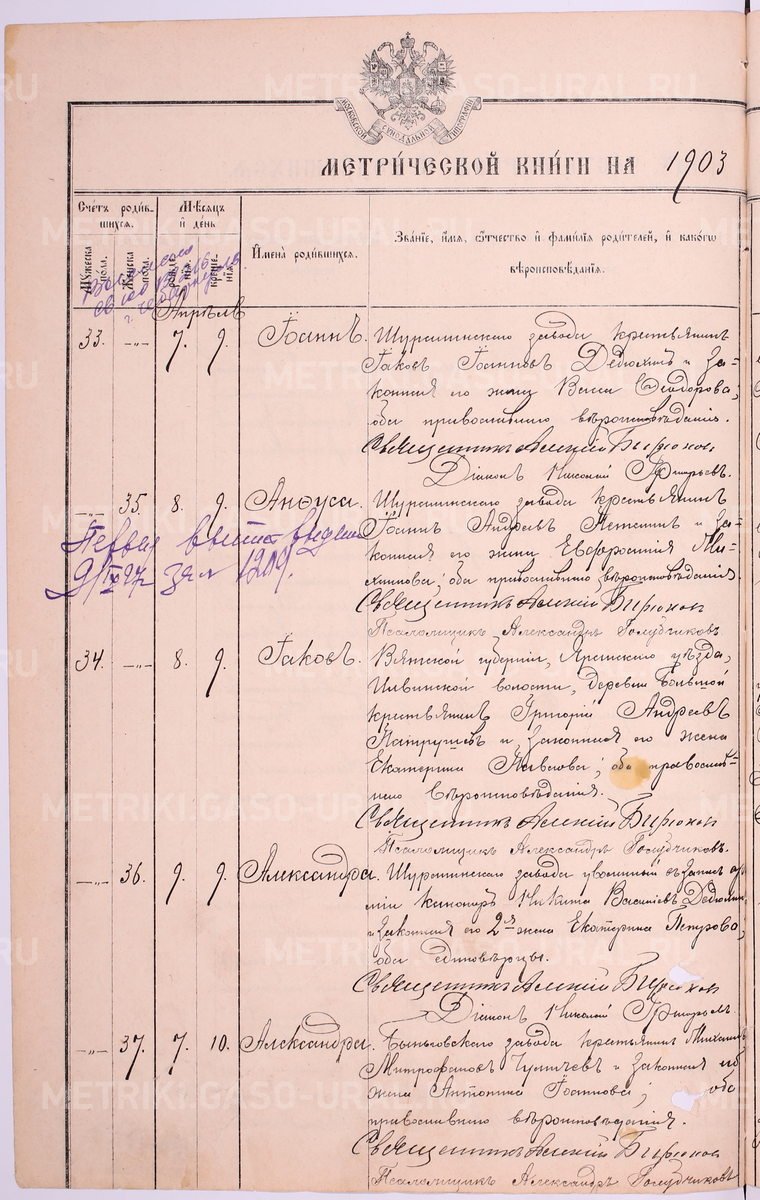 МОСКОВСКОЙ СѴНОДАЛЬНОЙ ТИПОГРАФІИ
МЕТРИ́ЧЕСКОЙ КНИ́ГИ НА 1903
Счетъ роди́вшихся.
Мужеска пола.
Женска пола.
Мѣсяцъ и день
рождѣнія.
крещенія.
Имена родившихся.
Зва́ніе, и́мя, ѻ҆́тчество и фами́лія родителей, и какого вѣроисповѣданія.
Апрѣль
33. -„- 7. 9. Іоаннъ.
Шуралинскаго завода крестьянинъ
Іаковъ Іоанновъ Дедюхинъ и за-
конная его жена Васса Ѳеодорова;
оба православнаго вѣроисповѣданія.
Священникъ Алексій Бирюков
Діаконъ Николай Григорьевъ.
-„- 35. 8. 9. Анѳуса.
Шуралинскаго завода крестьянинъ
Іоаннъ Андреевъ и за-
конная его жена Евфросинія
оба православнаго вѣроисповѣданія
Священникъ Алексій Бирюков
Псаломщикъ Александръ Голубчиковъ.
Первая выпись выдана
9/IX 27 за № 1209.
34. -„- 8. 9. Іаковъ.
Вятской губерніи, Яранскаго уѣзда,
волости, деревни Большой
крестьянинъ Григорій Андреевъ
Патрушевъ и законная его жена
Екатерина Павлова; оба православ-
наго вѣроисповѣданія.
Священникъ Алексій Бирюков
Псаломщикъ Александръ Голубчиковъ.
-„- 36. 9. 9. Александра.
Шуралинскаго завода уволенный въ запасъ ар-
міи канониръ Никита Васильевъ Дедюхинъ
и законная его 2-я жена Екатерина Петрова,
оба единовѣрцы.
Священникъ Алексій Бирюков
Діаконъ Николай Григорьевъ.
-„- 37. 7. 10. Александра.
Быньговскаго завода крестьянинъ Михаилъ
Митрофановъ и законная его
жена Антонина Іоаннова; оба
православнаго вѣроисповѣданія.
Священникъ Алексій Бирюков
Псаломщикъ Александръ Голубчиковъ
METRIKI.GASO-URAL.RU